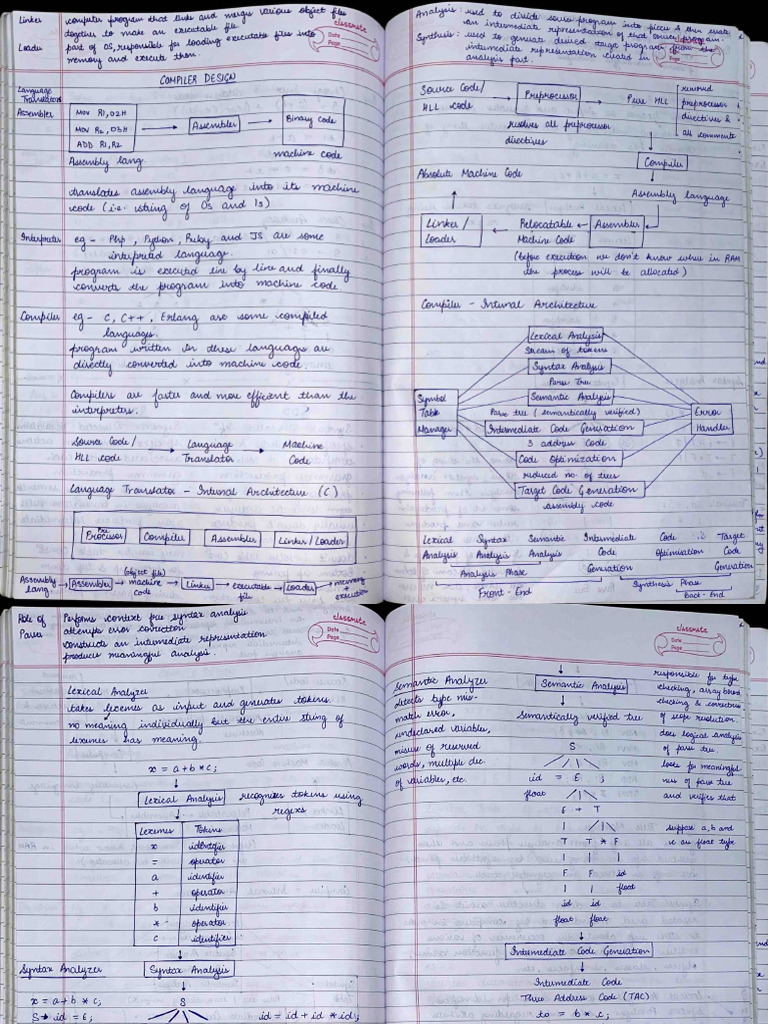 Linker
computer program that links and merges various object files
together to make an executable file.
Loader
part of OS, responsible for loading executable files into
memory and execute them.
classmate
Date
Page
COMPILER DESIGN
Language
Translators
Assembler
MOV R1, 02H
MOV R2, 03H
ADD R1, R2
Assembler
Binary code
Assembly lang
machine code
translates assembly language into its machine
code (i.e. string of 0s and 1s)
Interpreter
eg - Php, Python, Ruby and JS are some
interpreted language.
program is executed line by line and finally
converts the program into machine code.
Compiler
eg - C, C++, Erlang are some compiled
languages.
program written in these language are
directly converted into machine code.
Compilers are faster and more efficient than the
interpreters.
Source Code/
HLL code
Language
Translator
Machine
Code
Language Translator - Internal Architecture (C)
Pre
Processor
Compiler
Assembler
Linker/Loader
Assembly
lang
Assembler
(object file)
machine
code
Linker
executable
file
Loader
memory
+
execution
Analysis : used to divide source program into pieces & then create
an intermediate representation of that source program.
Synthesis : used to generate desired target program from the
intermediate representation created in
analysis part.
Source Code/
HLL code
Preprocessor
Pure HLL
removed
preprocessor
directives &
all comments
resolves all preprocessor
directives
Compiler
Absolute Machine Code
Assembly language
Linker/
Loader
Relocatable
Machine Code
Assembler
(before execution we don't know where in RAM
the process will be allocated)
Compiler - Internal Architecture
Lexical Analysis
Stream of tokens
Syntax Analysis
Parse Tree
Semantic Analysis
Parse tree (semantically verified)
Symbol
Table
Manager
Error
Handler
Intermediate Code Generation
3 address code
Code Optimization
reduced no. of trees
Target Code Generation
assembly code
Lexical Syntax Semantic Intermediate Code Target
Analysis Analysis Analysis Code Optimisation Code
Generation Generation
Analysis Phase
Synthesis Phase
Front-End
back-End
Role of
Parser
Performs context free syntax analysis
attempts error correction
constructs an intermediate representation
produces meaningful analysis.
classmate
Date
Page
Lexical Analyzer
takes lexemes as input and generates tokens.
no meaning individually but the entire string of
lexemes has meaning.
x = a+b*c;
Lexical Analysis
recognizes tokens using
regexs
Lexemes Tokens
x identifier
= operator
a identifier
+ operator
b identifier
* operator
c identifier
Syntax Analyzer
Syntax Analysis
x = a + b * c;
S
S → id = E;
id = id + id * id;
classmate
Date
Page
Semantic Analyzer
detects type mis-
match error,
undeclared variables,
misuse of reserved
words, multiple dec.
of variables, etc.
Semantic Analysis
Semantically verified tree
S
id = E ;
float
E + T
T T * F
F F id
float
id id
float float
responsible for type
checking, array bound
checking & correctness
of scope resolution.
does logical analysis
of parse tree.
looks for meaningful
ness of parse tree
and verifies that
suppose a, b and
x are float type
Intermediate Code Generation
Intermediate Code
Three Address Code (TAC)
to = b * c;